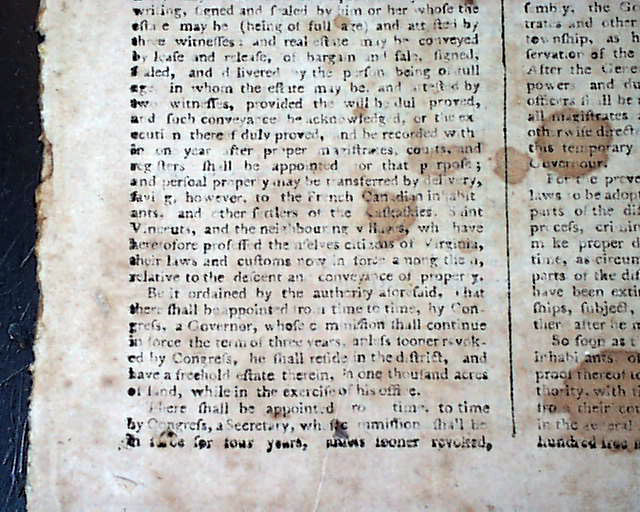 writing, signed and sealed by him or her whose the
estate may be (being of full age) and attested by
three witnesses; and real estate may be conveyed
by lease and release, or bargain and sale, signed,
sealed, and delivered by the person being of full
age, in whom the estate may be, and attested by
two witnesses, provided the will be duly proved,
and such conveyance be acknowledged, or the ex
ecution thereof duly proved, and be recorded with
in one year after proper magistrates, courts, and
registers shall be appointed for that purpose;
and persoal property may be transferred by delivery,
saving, however, to the French Canadian inhabit
ants, and other settlers of the Kaskaskies, Saint
Vincents, and the neighbouring villages, who have
heretofore professed themselves citizens of Virginia,
their laws and customs now in force among them,
relative to the descent and conveyance of property.
Be it ordained by the authority aforesaid, that
there shall be appointed from time to time, by Con-
gress, a Governor, whose commission shall continue
in force the term of three years, unless sooner revok-
ed by Congress, he shall reside in the district, and
have a freehold estate therein, in one thousand acres
of land, while in the exercise of his office.
There shall be appointed from time to time
by Congress, a Secretary, whose commission shall be
in force for four years, unless sooner revoked,
sembly, the Ge
trates and other
township, as h
servation of the
After the Gene
powers and du
officers shall be
all magistrates
otherwise direct
this temporary
Governour.
For the preve
laws to be adopt
parts of the di
process, crimin
make proper d
time, as circum
parts of the dis
have been extin
ships, subject,
ther after he a
So soon as t
inhabitants of
proof thereof to
thority, with ti
from their co
in the general
hundred free m